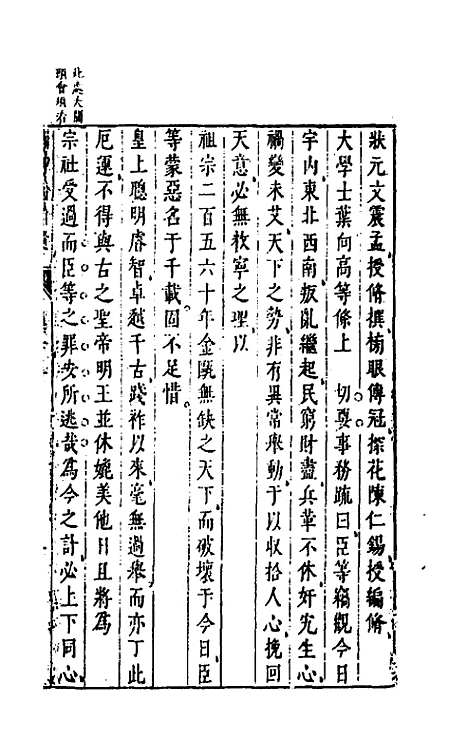 此處大關
狀元文震孟授脩撰榆眼傅冠探花陳仁錫授編脩
大學士葉向高等條上　切要事務疏曰臣等竊觀今日
宇內東北西南叛亂繼起民窮財盡兵革不休奸宄生心
禍變未艾天下之勢非有異常舉動于以收拾人心挽回
天意必無救寧之理以
祖宗二百五六十年金甌無缺之天下而破壞于今日臣
等蒙惡名于千載固不足惜
皇上聰明睿智卓越千古踐祚以來毫無過舉而亦丁此
厄運不得與古之聖帝明王並休媲美他日且將為
宗社受過而臣等之罪安所逃哉為今之計必上下同心